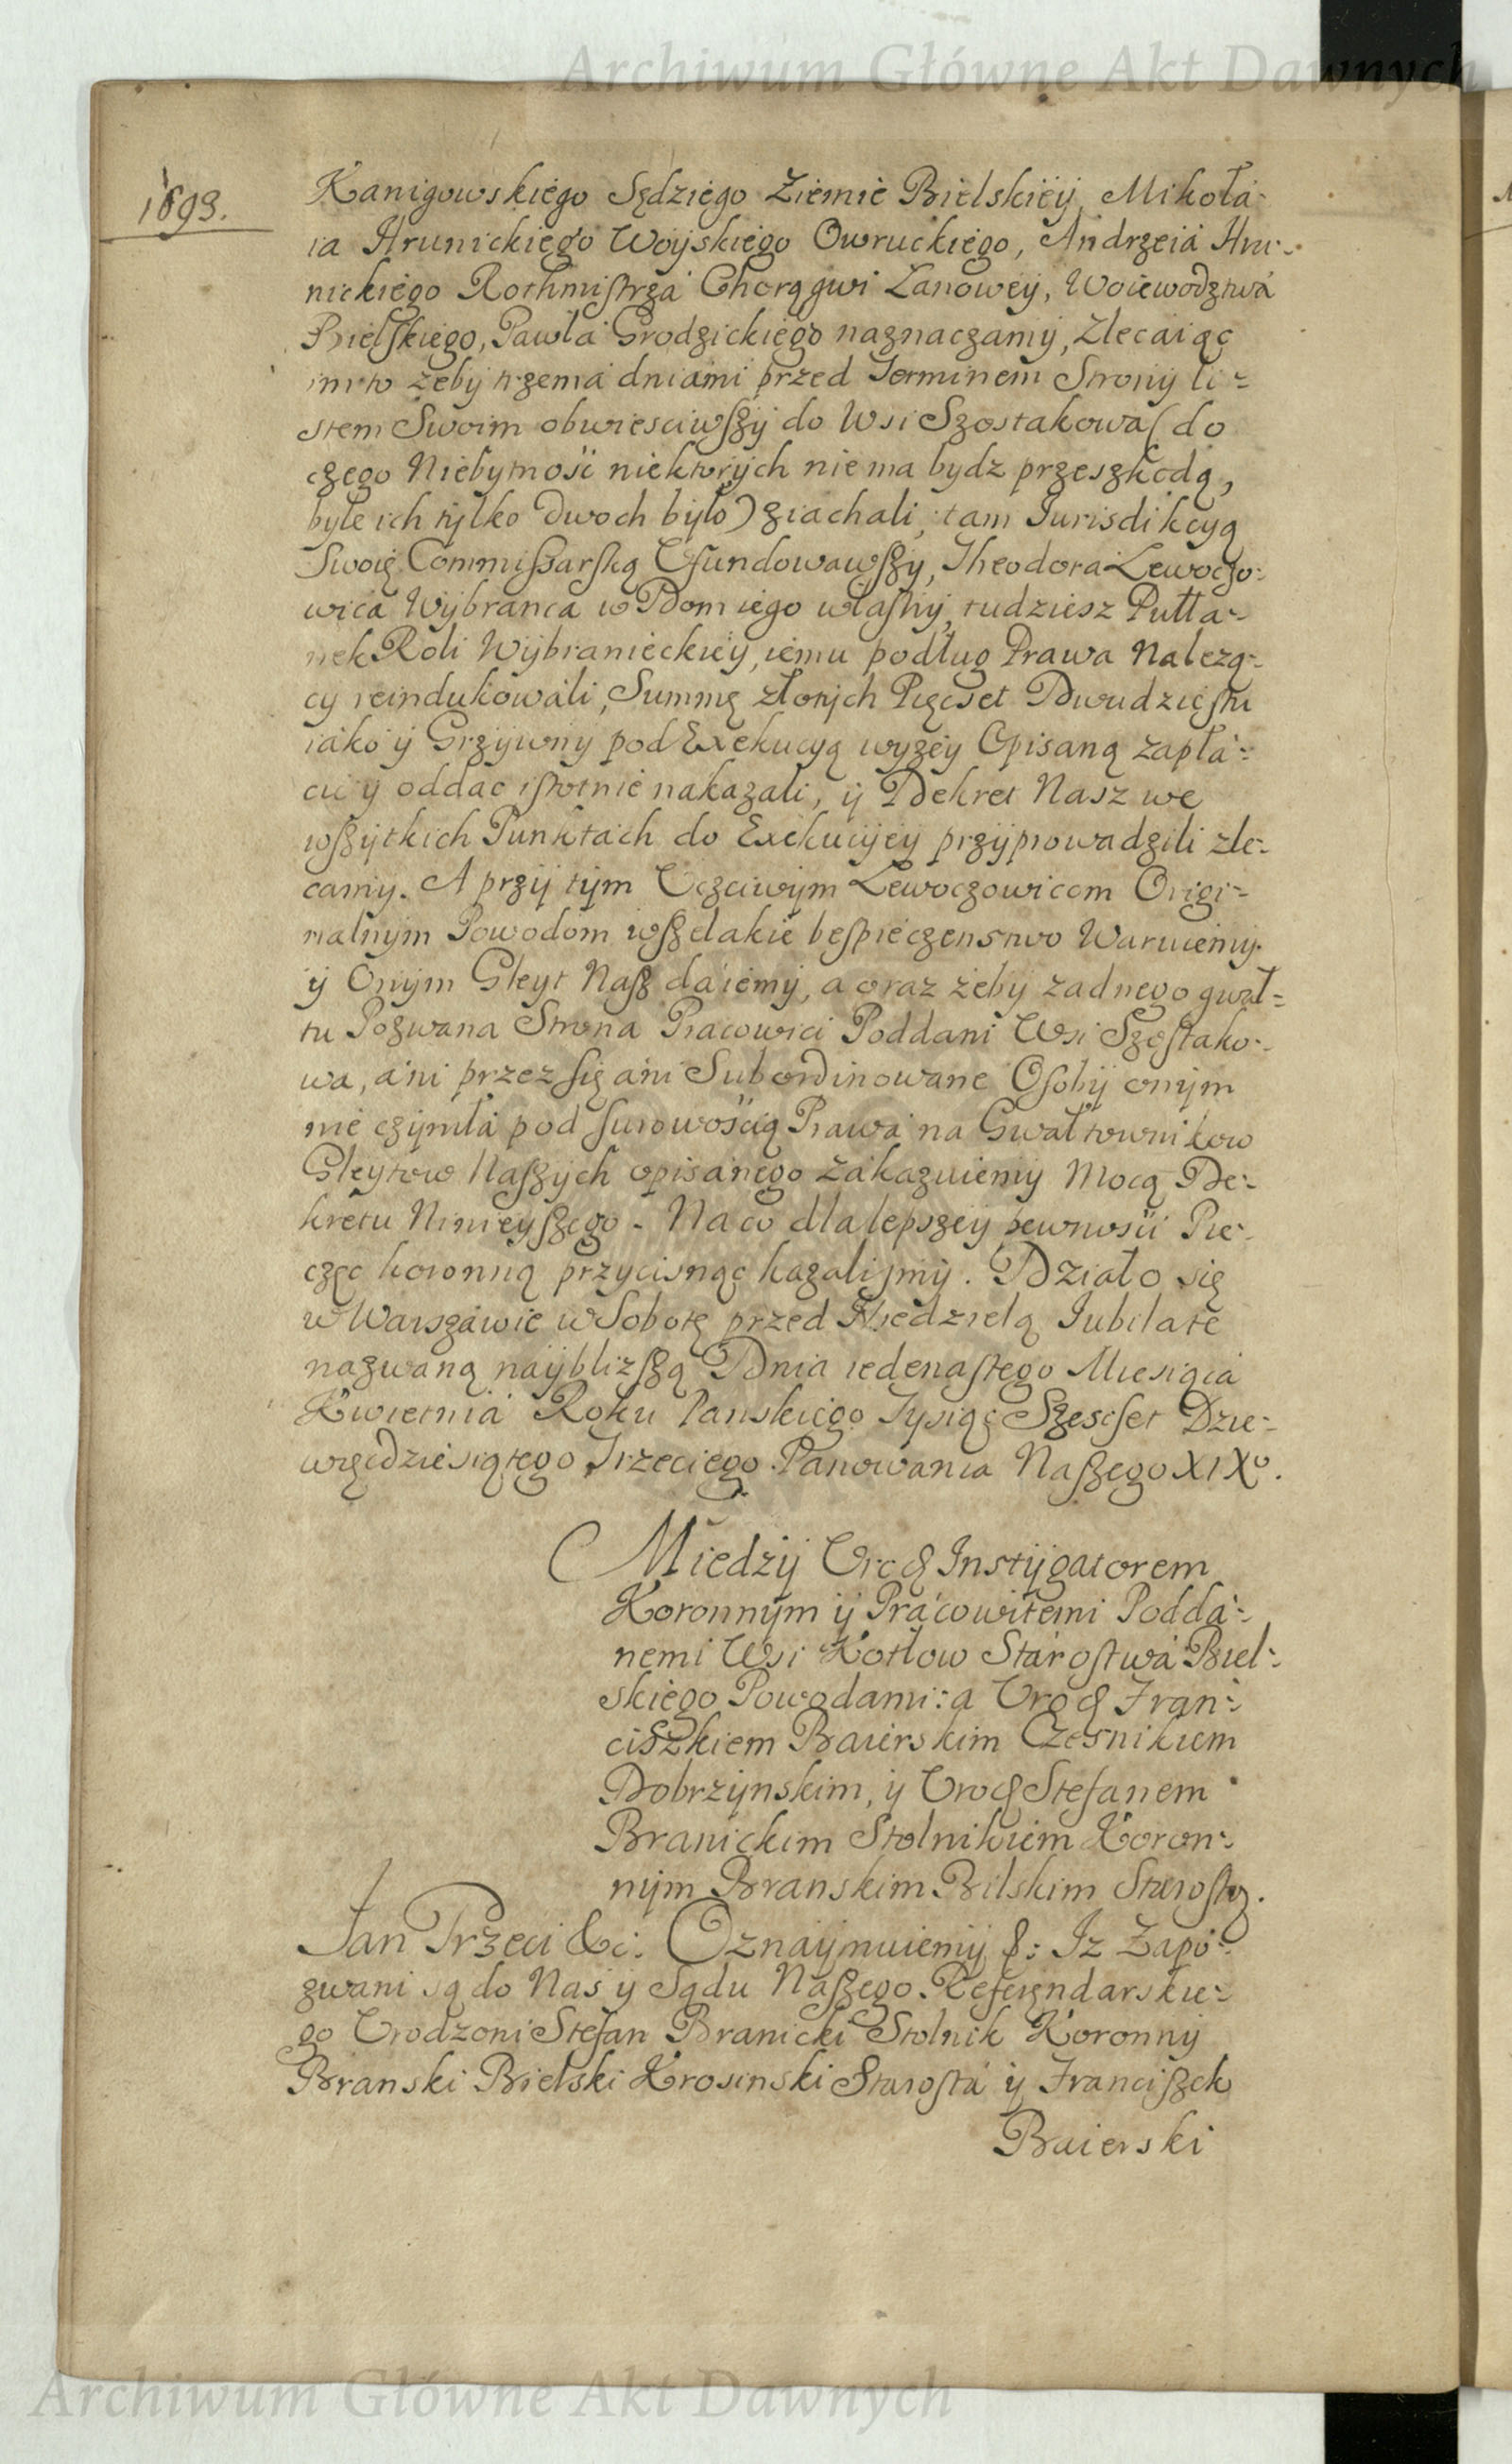 Archiwum Główne Akt Dawnych
1693.
Kanigowskiego Sędziego Ziemie Bielskiey, Mikoła-
ia Hrunickiego Woyskiego Owruckiego, Andrzeia Hru-
nickiego Rothmistrza Chorągwi Łanowey, Woiewodztwa
Bielskiego, Pawła Grodzickiego naznaczamy, Zlecaiąc
im to żeby trzema dniami przed Terminem Strony li-
stem Swoim obwiesciwszy do Wsi Szostakowa (do
czego Niebytnosći niektorych nie ma bydz przeszkodą,
byle ich tylko dwoch było) ziachali, tam Iurisdikcyą
Swoię Commissarską Ufundowawszy, Theodora Lewoczo-
wica Wybranca w Dom iego własny, tudziesz Pułła-
nek Roli Wybranieckiey, iemu podług Prawa Nalezą-
cy reindukowali, Summę złotych Pięcset Dwudziestu
iako y Grzywny pod Exekucyą wyzey Opisaną zapła-
cić y oddac istotnie nakazali, y Dekret Nasz we
wszytkich Punktach do Exekucyey przyprowadzili zle-
camy. A przy tym Uczciwym Lewoczowicom Origi-
nalnym Powodom wszelakie bespieczenstwo Waruiemy
y Onym Gleyt Nasz daiemy, a oraz żeby zadnego gwał-
tu Pozwana Strona Pracowici Poddani Wsi Szostako-
wa, ani przez się ani Subordinowane Osoby onym
nie czyniła pod surowośćią Prawa na Gwałtownikow
Gleytow Naszych opisanego zakazuiemy Mocą De-
kretu Ninieyszego. Na co dla lepszey pewnosći Pie-
częc koronną przycisnąc kazalismy. Działo się
w Warszawie w Sobotę przed Niedzielą Iubilate
nazwaną nayblizszą Dnia iedenastego Miesiąca
Kwietnia Roku Panskiego Tysiąc Szescset Dzie-
więcdziesiątego Trzeciego Panowania Naszego XIXo.
Miedzy Urod Instygatorem
Koronnym y Pracowitemi Podda-
nemi Wsi Kotłow Starostwa Biel-
skiego Powodami: a Urod Fran-
ciszkiem Baierskim Czesnikiem
Dobrzynskim, y Urod Stefanem
Branickim Stolnikiem Koron-
nym Branskim Bilskim Starostą.
Jan Trzeci &c: Oznaymuiemy &: Iz Zapo-
zwani są do Nas y Sądu Naszego Referendarskie-
go Urodzoni Stefan Branicki Stolnik Koronny
Branski Bielski Krosinski Starosta y Franciszek
Baierski
Archiwum Główne Akt Dawnych